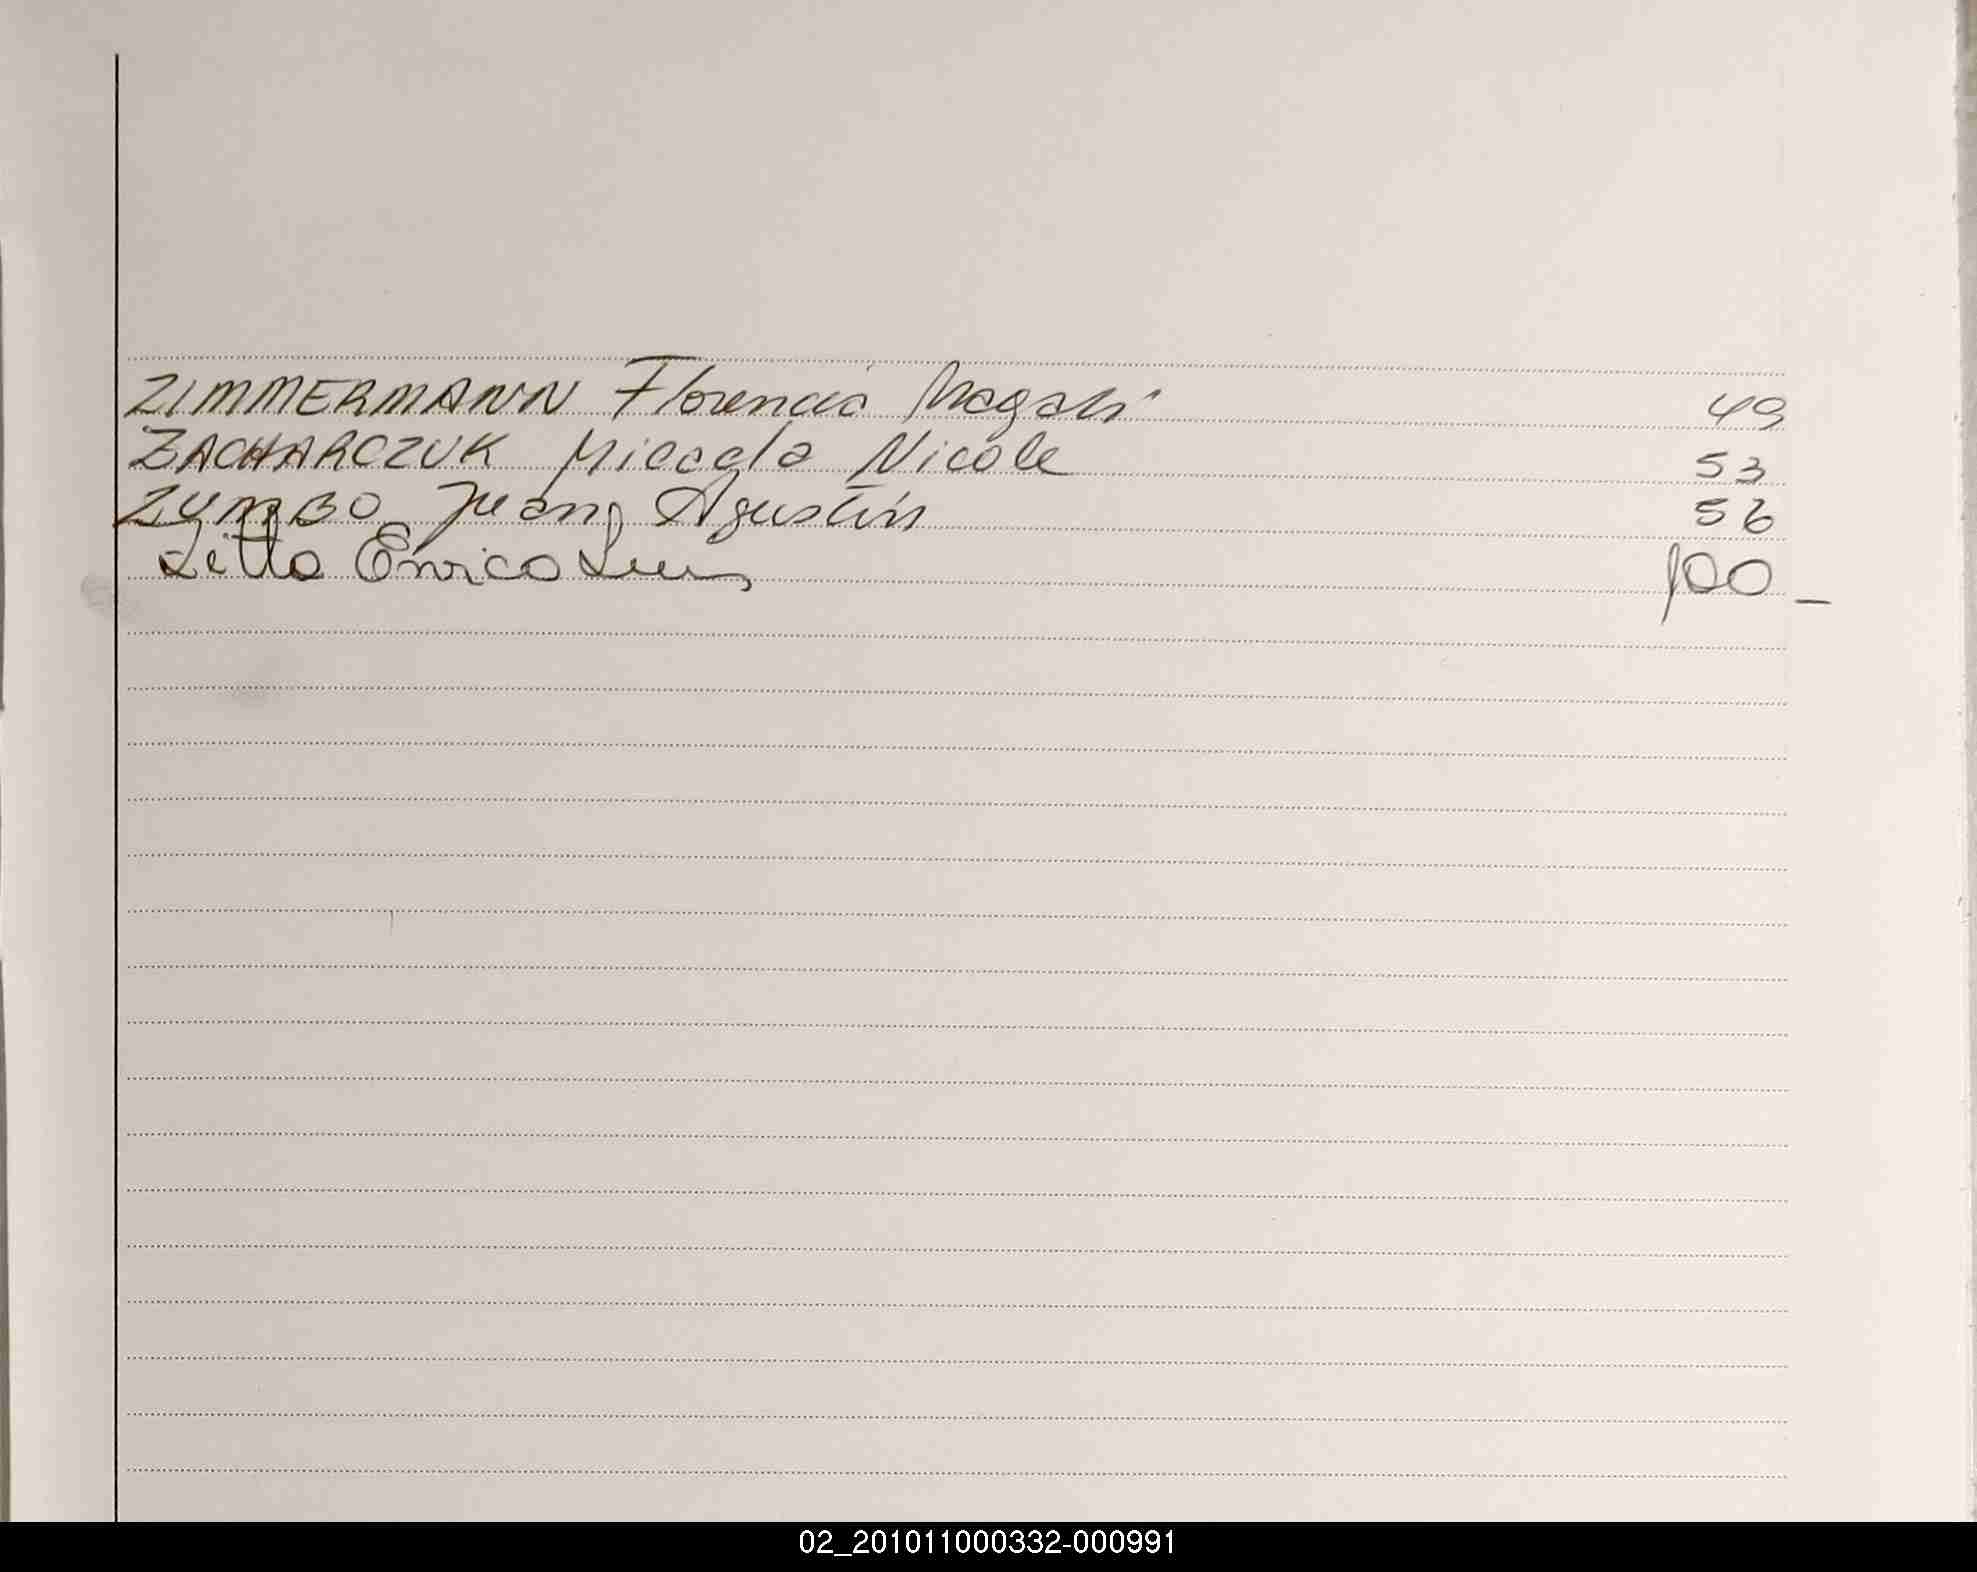 ZIMMERMANN Florencia Magalí 49
ZACHARCZUK Micaela Nicole 53
ZUMBO Juan Agustín 56
Zitto Enrico Luis 100_
02_201011000332-000991